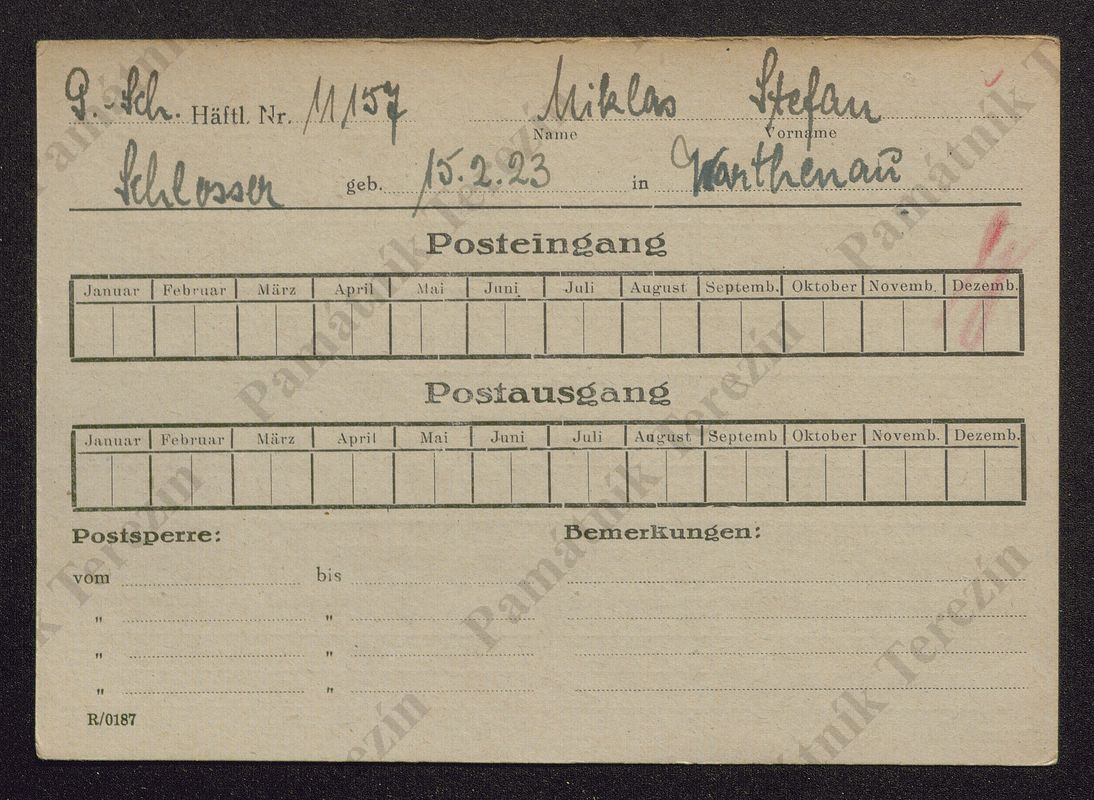 P. Sch. Häftl. Nr. 11157 Miklas Stefan
Name Vorname
Schlosser geb. 15.2.23 in Warthenau
Posteingang
Januar Februar März April Mai Juni Juli August Septemb. Oktober Novemb. Dezemb.
Postausgang
Januar Februar März April Mai Juni Juli August Septemb Oktober Novemb. Dezemb.
Postsperre: Bemerkungen:
vom bis
" "
" "
" "
R/0187
Památník Terezín